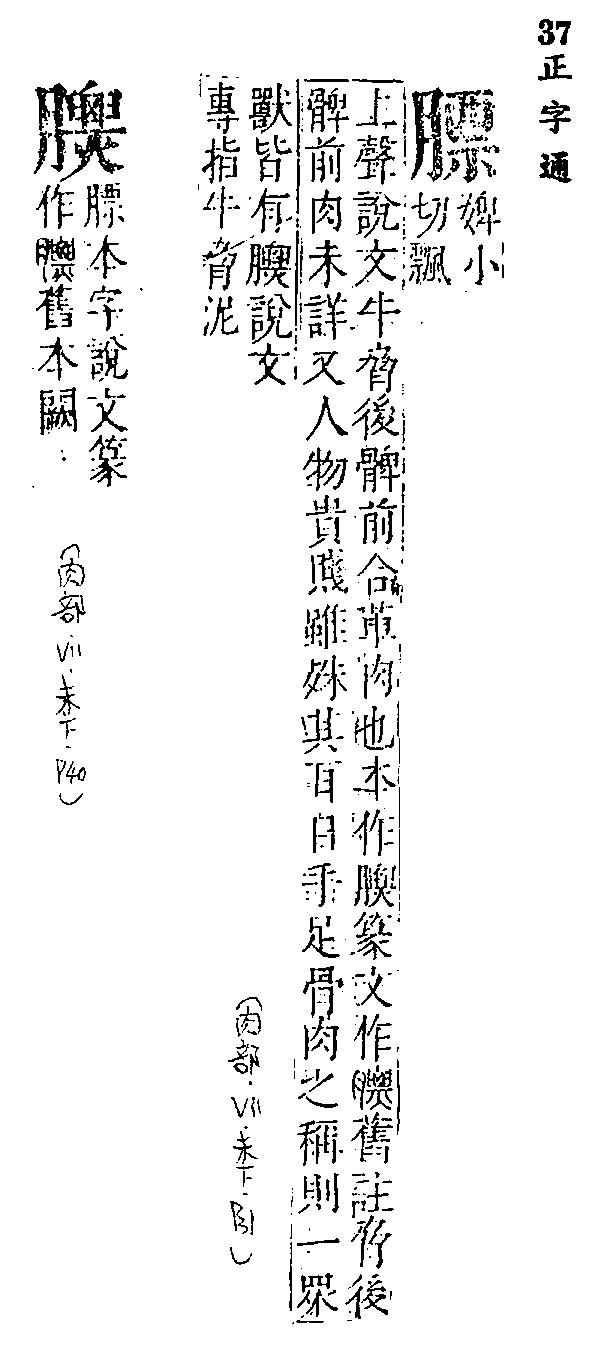 37 正字通
膘
婢小
切飄
上聲說文牛脅後髀前合革肉也本作篆文作舊註脅後
髀前肉未詳又人物貴賤雖殊其耳目手足骨肉之稱則一眾
獸皆有說文
專指牛脅泥
(肉部·VII·未下·
膘本字說文篆
作舊本闕
(肉部·VII·未下·P40)